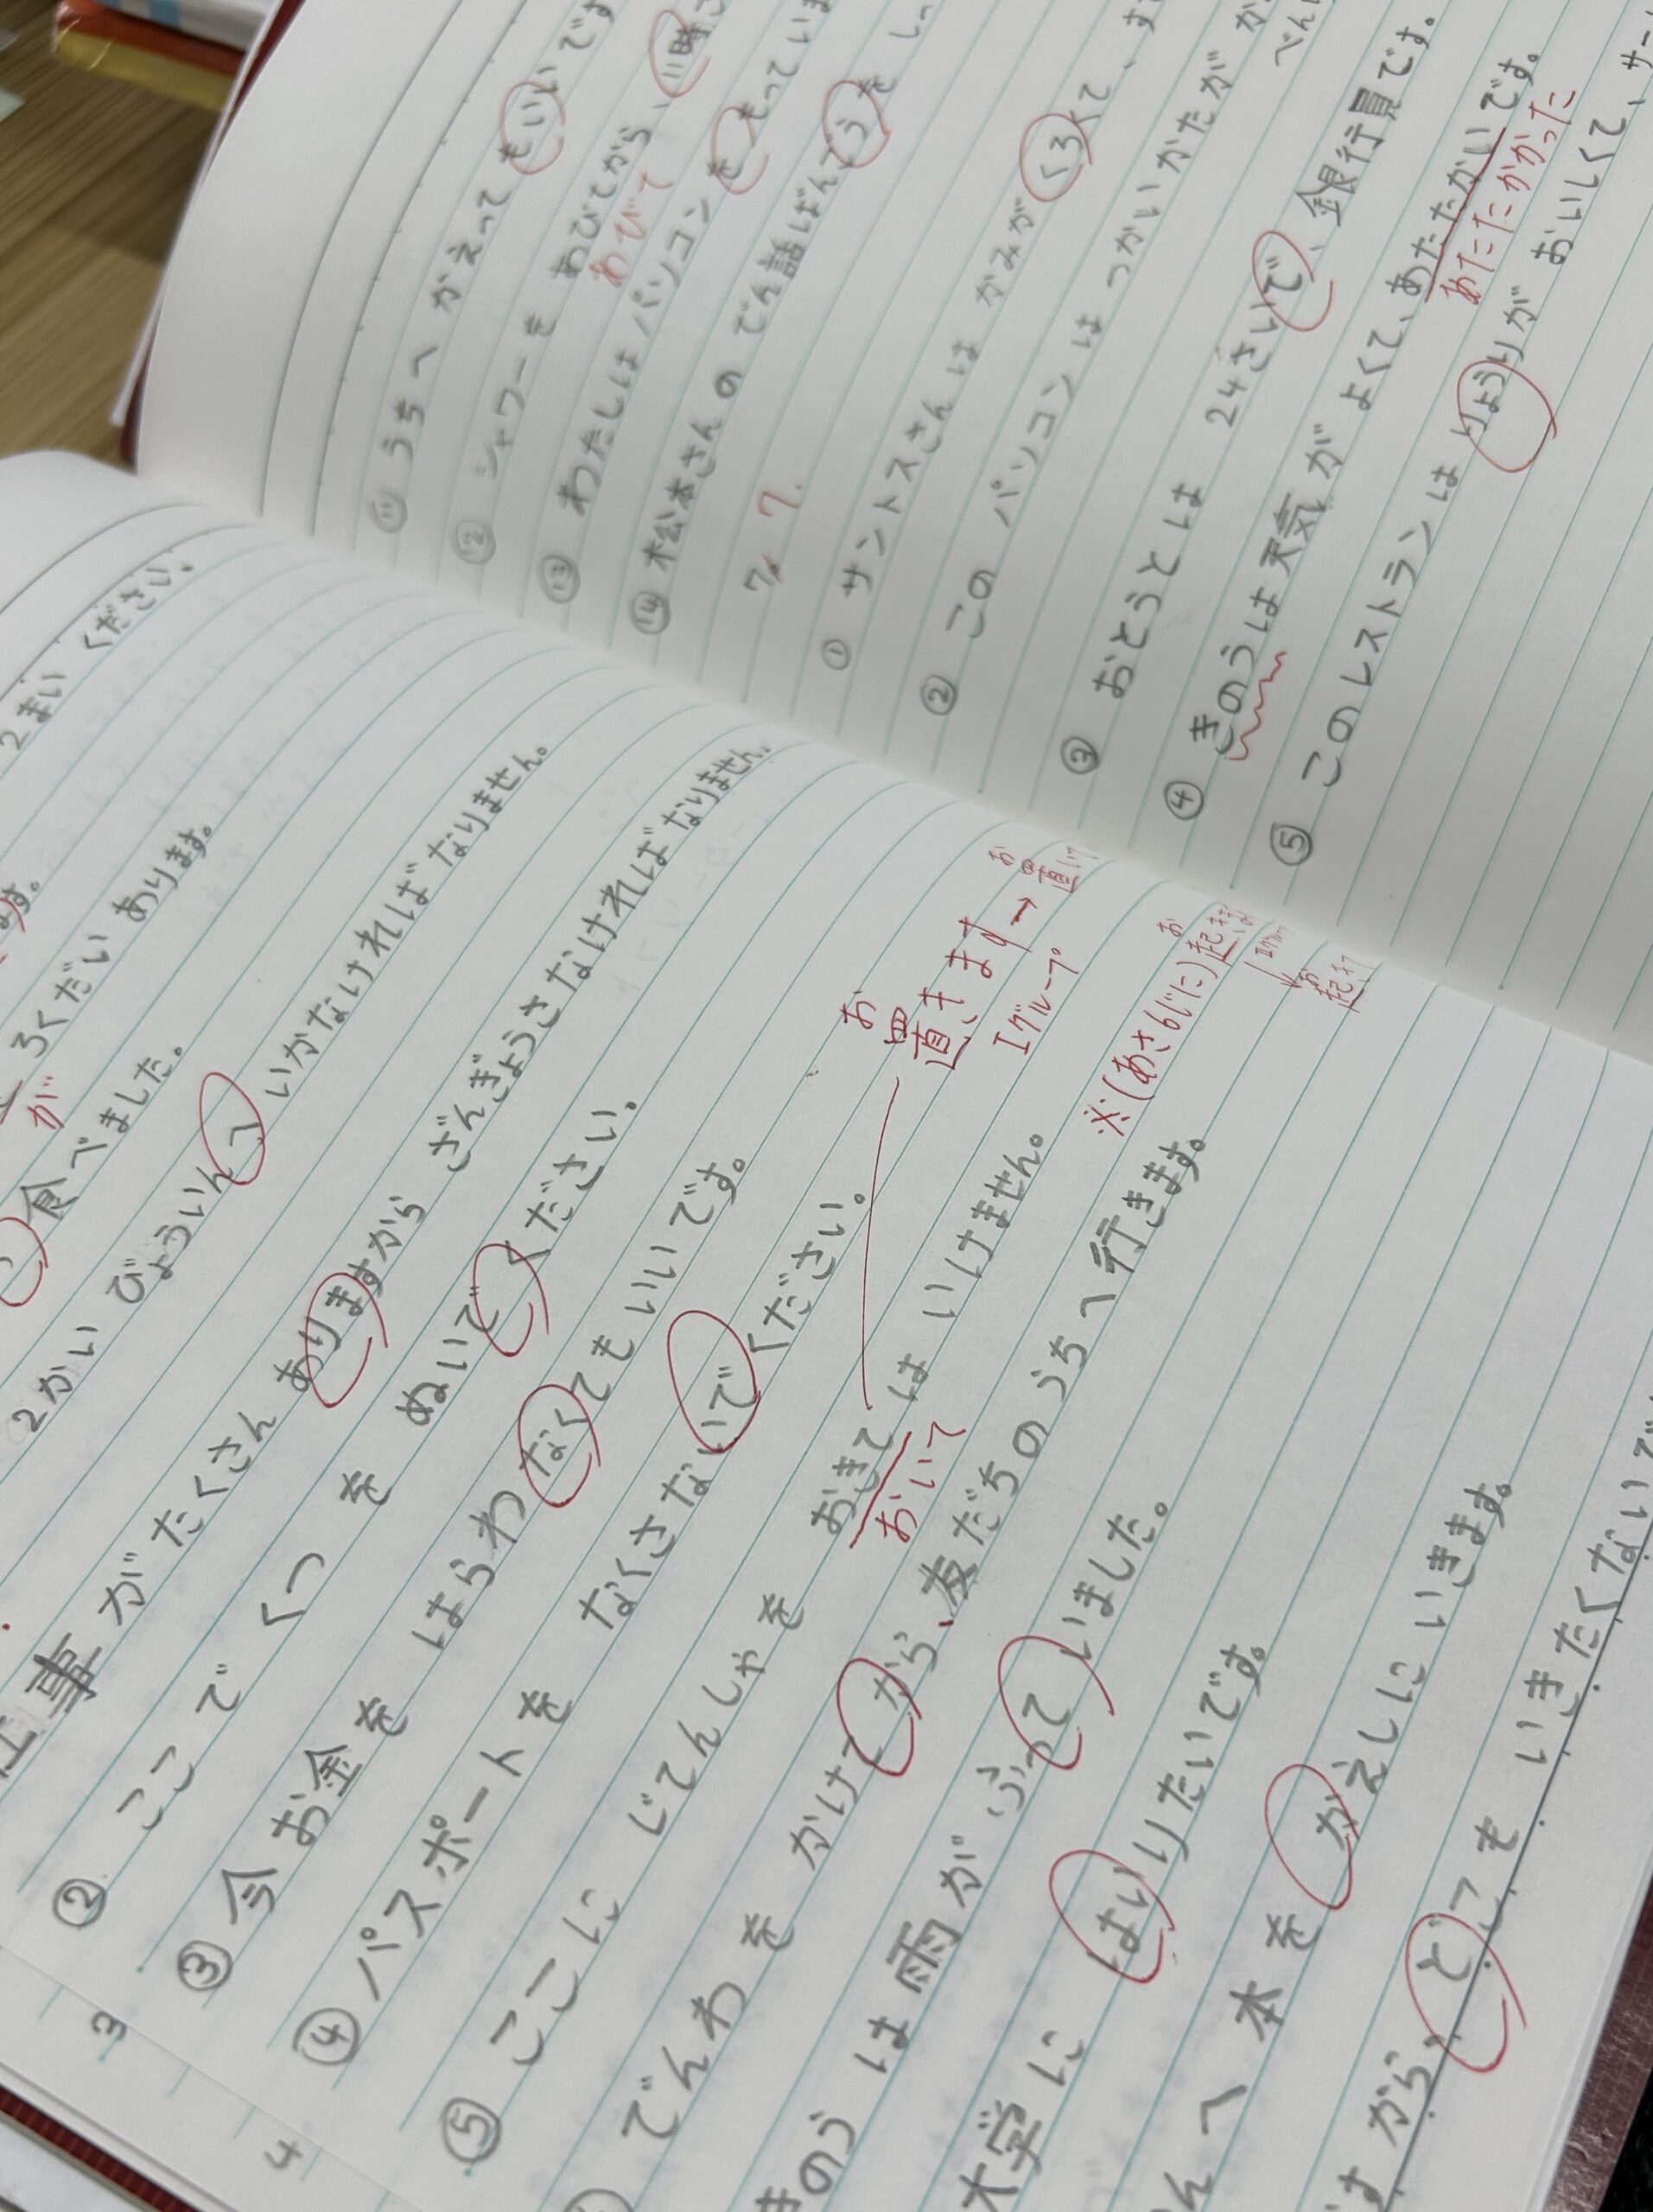 2まい ください。
ろくだい あります。
が
食べました。
2かい びょういんへ いかなければ なりません。
事 が たくさん ありますから ざんぎょうさなければ なりません。
② ここで くつ を ぬいで ください。
③ 今 お金 を はらわ なくても いいです。
④ パスポート を なくさないで ください。
3
4
⑤ ここに じてんしゃを おきては いけません。
おいて
お
置きます→
お
置いて
Iグループ
でんわ を かけてから、友だちの うちへ 行きます。
※(あさ6じに)
お
起きます
お
起きて
きのう は 雨 が ふって いました。
大学 に はいりたいです。
へ 本 を かえしに いきます。
から、どこも いきたくない
⑪ うちへ かえっても いいです
⑫ シャワーを あびてから、11時
あびて
⑬ わたしは パソコン を もって いま
⑭ 松本さんの でん話ばんごうを し
7. 7.
① サントスさんは かみが くろくて、
② この パソコン は つかいかたが か
べん
③ おとうとは 24さいで、銀行員です。
④ きのうは 天気が よくて、あたたかいです。
あたたかかった
⑤ このレストランは りょうりが おいしくて、サー